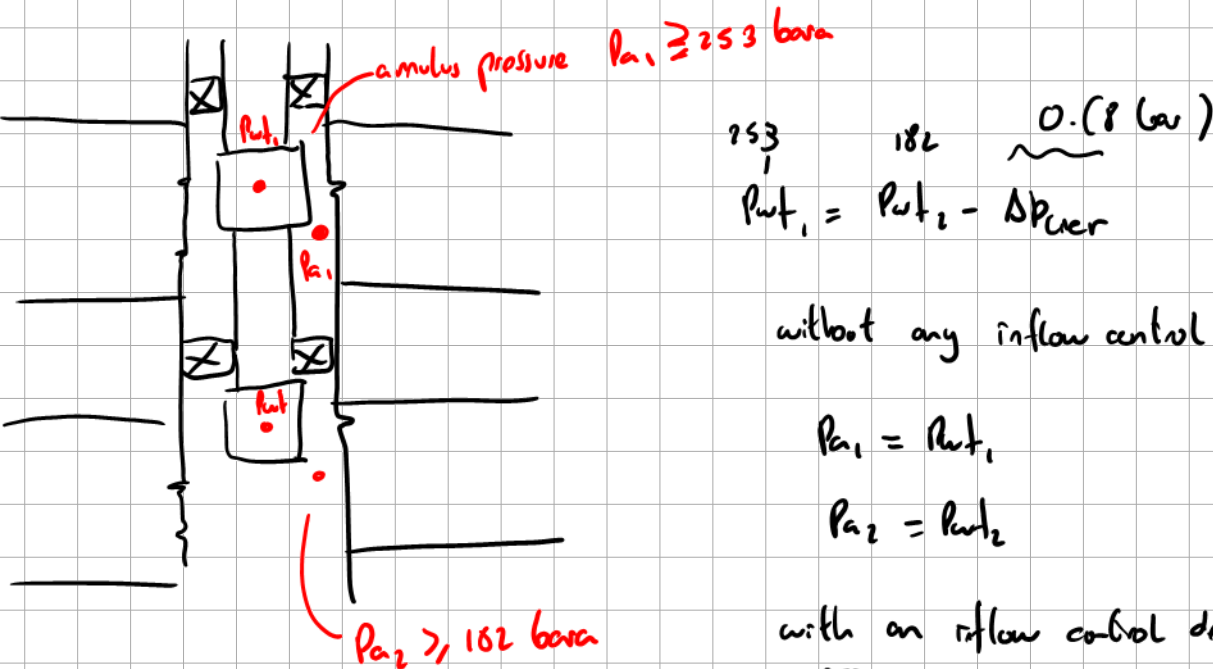 amulus pressure Pa₁ ≥ 253 bara
Pwf₁
Pa₁
Pwf
Pa₂ ≥ 182 bara
253 182 0.(8 bar)
Pwf₁ = Pwf₂ - ΔP
without any inflow control
Pa₁ = Pwf₁
Pa₂ = Pwf₂
with an inflow control